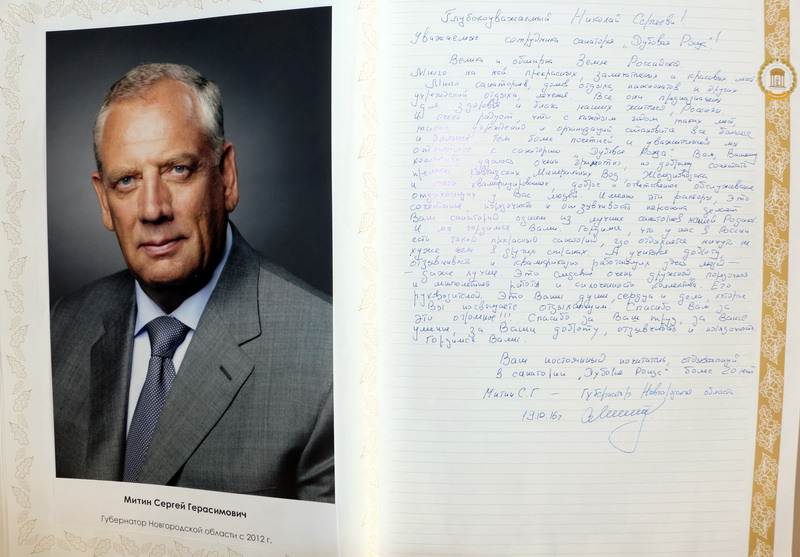 Митин Сергей Герасимович
Губернатор Новгородской области с 2012 г.
Глубокоуважаемый Николай Сергеевич!
Уважаемые сотрудники санатория "Дубовая Роща"!
Велика и обширна Земля Российская
Много на ней прекрасных, замечательных и красивых мест
Много санаториев, домов отдыха, пансионатов и других
учреждений отдыха, лечения. Все они предназначены
для здоровья и блага наших жителей, России.
И очень радует, что с каждым годом таких мест,
таких учреждений и организаций становится все больше
и больше. Тем более почетней и уважительней мы
относимся к санаторию "Дубовая Роща". Вам, Вашему
коллективу удалось очень грамотно, по доброму сочетать
Кавказских Минеральных Вод, Железноводска
и квалифицированное, доброе и ответственное обслуживание
отдыхающих у Вас людей. Именно эти факторы, это
сочетание и отзывчивость персонала делают
Ваш санаторий одним из лучших санаториев нашей Родины
И мы гордимся Вами. Гордимся, что у нас в России
есть такой прекрасный санаторий, где отдыхается ничуть не
хуже чем в других странах. А учитывая доброту,
отзывчивость и квалификацию работающих здесь людей -
- даже лучше. Это следствие очень дружной, порядочной
и многолетней работы и сплоченности коллектива, Его
руководителей. Это Ваши души, сердца и дела, которые
Вы посвящаете отдыхающим. Спасибо Вам за
это огромное!!! Спасибо за Ваш труд, за Ваше
умение, за Вашу доброту, отзывчивость и порядочность
Гордимся Вами.
Ваш постоянный почитатель, отдыхающий
в санатории "Дубовая Роща" более 20 лет
Митин С.Г - Губернатор Новгородской области
19.10.16г